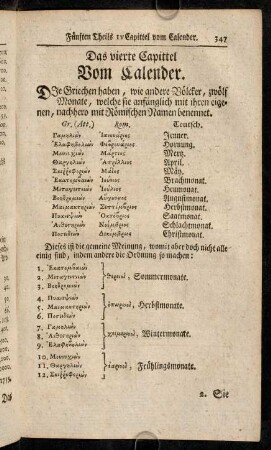 Fünften Theils IV Capittel vom Calender. 347
Das vierte Capittel
Vom Calender.
DIe Griechen haben, wie andere Völcker, zwölf
Monate, welche sie anfänglich mit ihren eige-
nen, nachhero mit Römischen Namen benennet.
Gr. (Att.) Rom. Teutsch.
Γαμηλιών Ἰανουάριος Jenner.
Ἐλαφηβολιών Φεβρουάριος Hornung.
Μουνυχιών Μάρτιος Mertz.
Θαργηλιών Ἀπρίλλιος April.
Σκιῤῥοφοριών Μάϊος Mäy.
Ἑκατομβαιών Ἰούνιος Brachmonat.
Μεταγειτνιών Ἰούλιος Heumonat.
Βοηδρομιών Αὔγουστος Augustmonat.
Μαιμακτηριών Σεπτέμβριος Herbstmonat.
Πυανεψιών Ὀκτώβριος Saatmonat.
Ἀνθεστηριών Νοέμβριος Schlachtmonat.
Ποσειδεών Δεκέμβριος Christmonat.
Dieses ist die gemeine Meinung, womit aber doch nicht alle
einig sind, indem andere die Ordnung so machen:
1. Ἑκατομβαιών
2. Μεταγειτνιών θερινοὶ, Sommermonate.
3. Βοηδρομιών
4. Πυανεψιών
5. Μαιμακτηριών ὀπωρινοὶ, Herbstmonate.
6. Ποσειδεών
7. Γαμηλιών
8. Ἀνθεστηριών χειμερινοὶ, Wintermonate.
9. Ἐλαφηβολιών
10. Μουνυχιών
11. Θαργηλιών ἐαρινοὶ, Frühlingsmonate.
12. Σκιῤῥοφοριών
2. Sie